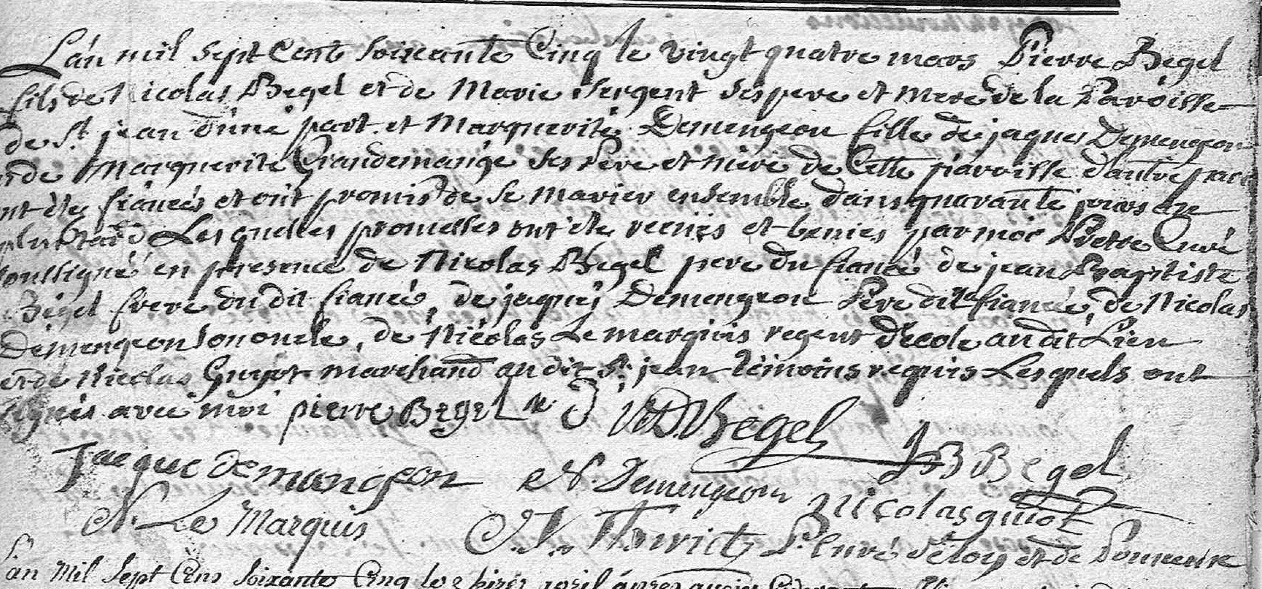 L'an mil sept cent soixante cinq le vingt quatre mars Pierre Begel
fils de Nicolas Begel et de Marie Sergent ses pere et mere de la Paroisse
de St jean d'une part et Marguerite Demengeon fille de jaques Demengeon
de Marguerite Grandemange ses Pere et mere de Cette paroisse d'autre part
ont étés fiancés et ont promis de se marier ensemble dans quarante jours
plus tard Lesquelles promesses ont été reçuës et benies par moi Pretre Curé
soussigné en presence de Nicolas Begel pere du fiancé de jean Baptiste
Begel frere du dit fiancé, de jaques Demengeon Pere de la fiancée, de Nicolas
Demengeon son oncle, de Nicolas Le marquis regent d'école au dit Lieu
et de Nicolas Guyot marchand au dit St jean témoins requis Lesquels ont
signés avec moi pierre Begel Begel
J B Begel
jacque demangeon N. Demengeon nicolas guiot
N. Le Marquis Curé et de
L'an Mil Sept Cens Soixante Cinq